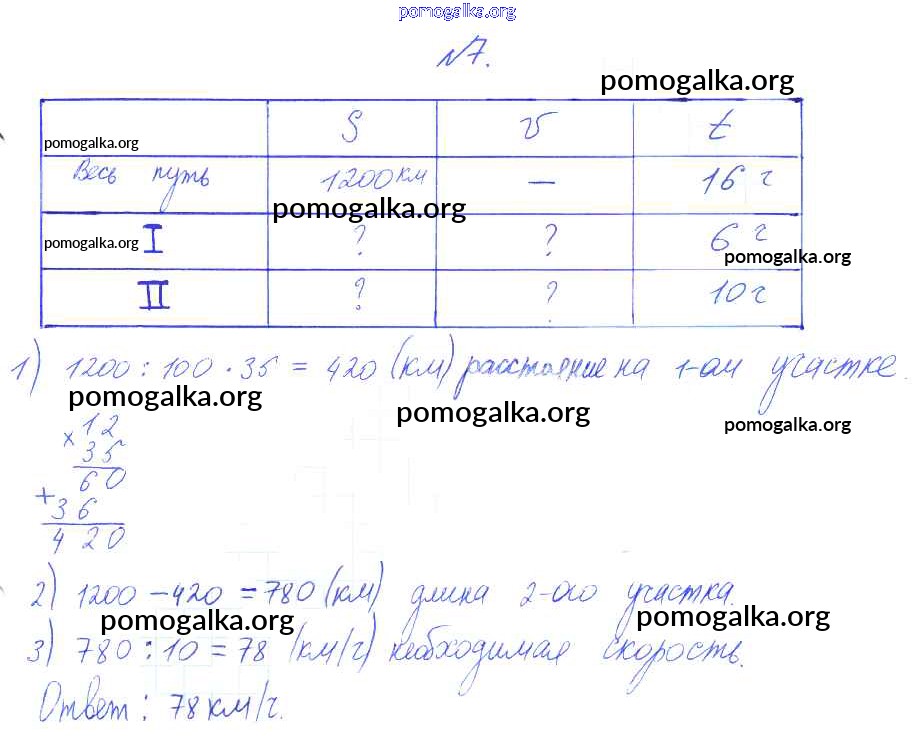 pomogalka.org
№7.
pomogalka.org
pomogalka.org S v t
Весь путь 1200км — 16 г
pomogalka.org
pomogalka.org I ? ? 6 г
pomogalka.org
II ? ? 10г
1) 1200 : 100 · 35 = 420 (км) расстояние на 1-ом участке.
pomogalka.org pomogalka.org pomogalka.org
× 12
35
60
+ 36
420
2) 1200 – 420 = 780 (км) длина 2-ого участка.
pomogalka.org pomogalka.org
3) 780 : 10 = 78 (км/г) необходимая скорость.
Ответ: 78 км/г.